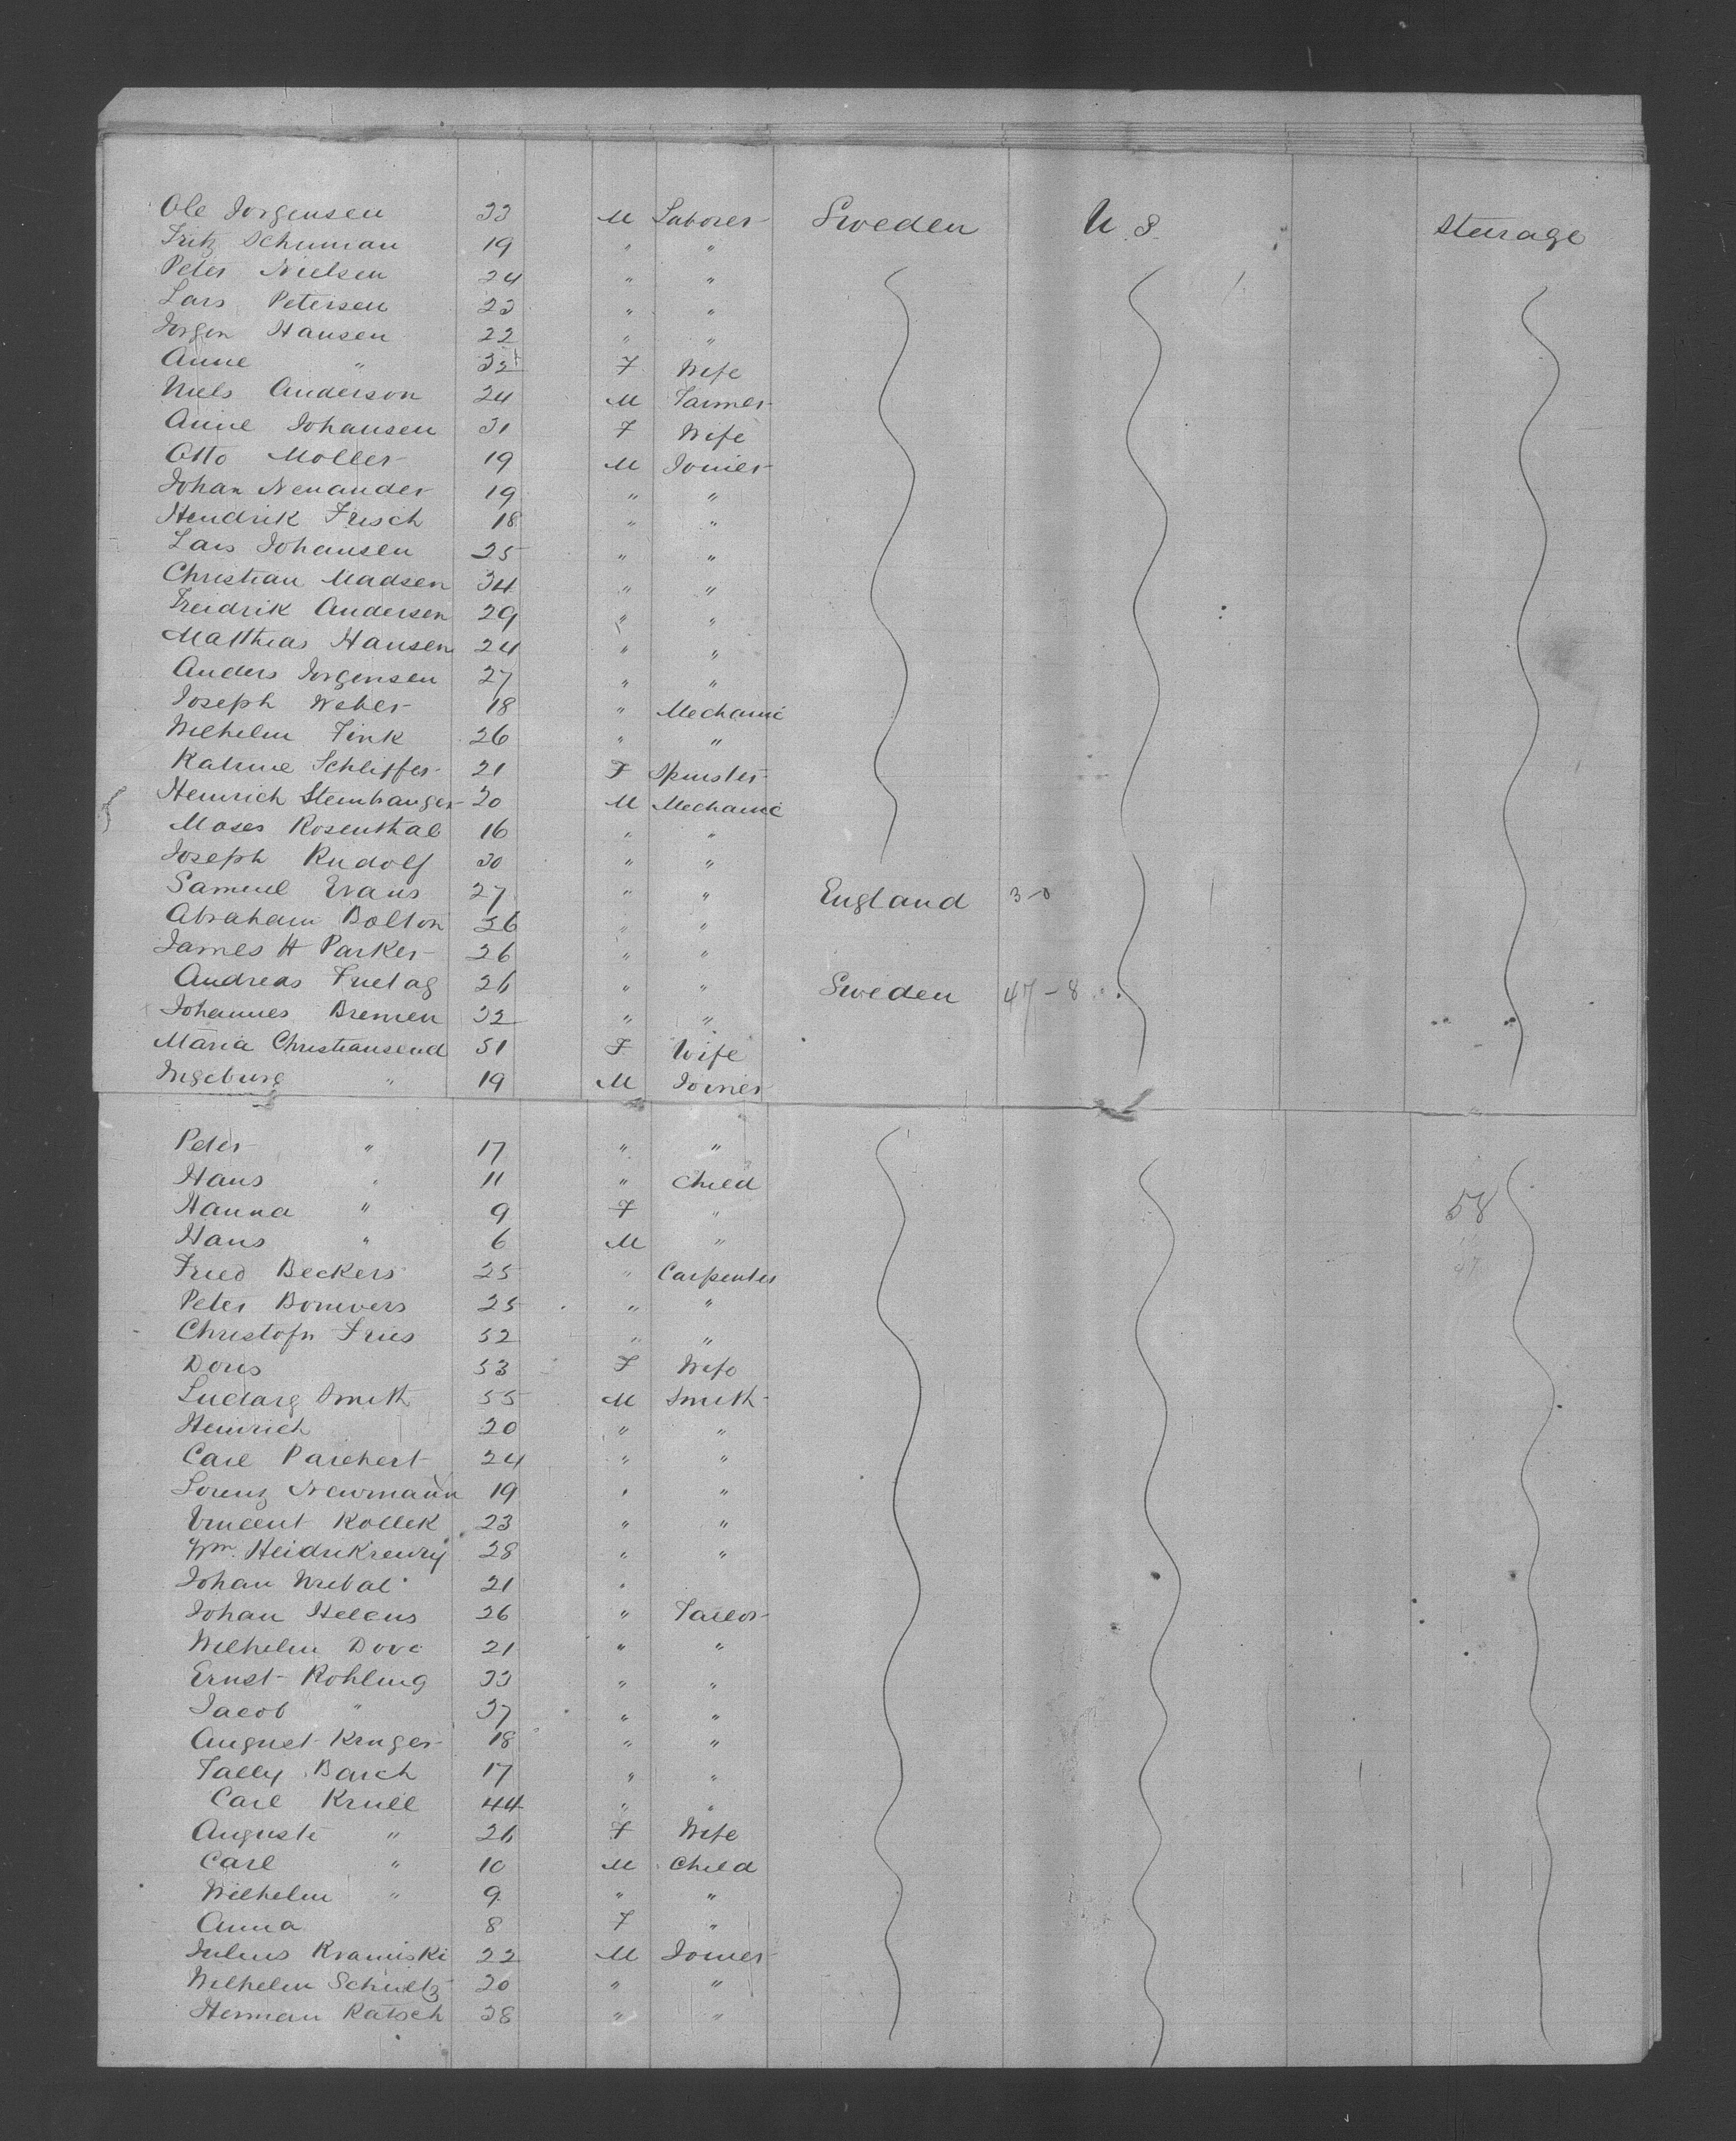 Ole Jorgensen 33 M Laborer Sweden U.S. Steerage
Fritz Schuman 19 " "
Peter Nielsen 24 " "
Lars Petersen 23 " "
Jorgen Hansen 22 " "
Anne " 32 F Wife
Niels Anderson 24 M Farmer
Anne Johansen 31 F Wife
Otto Moller 19 M Joiner
Johan Nenander 19 " "
Hendrik Frisch 18 " "
Lars Johansen 25 " "
Christian Madsen 34 " "
Freidrik Andersen 29 " "
Matthias Hansen 24 " "
Anders Jorgensen 27 " "
Joseph Weber 18 " Mechanic
Wilhelm Fink 26 " "
Katrine Schliffer 21 F Spinster
Heinrich Steinhanger 20 M Mechanic
Moses Rosenthal 16 " "
Joseph Rudolf 30 " "
Samuel Evans 27 " " England 3-0
Abraham Bolton 36 " "
James H Parker 26 " "
Andreas Freitag 26 " " Sweden 47-8
Johannes Bremen 32 " "
Maria Christiansend 51 F Wife
Ingeburg " 19 M Joiner
Peter " 17 " "
Hans " 11 " Child
Hanna " 9 F " 58
Hans " 6 M "
Fried Beckers 25 " Carpenter
Peter Bonwers 25 " "
Christofn Fries 52 " "
Doris 53 F Wife
Ludarg Smith 55 M Smith
Heinrich 20 " "
Carl Parchert 24 " "
Lorenz Newmann 19 " "
Vincent Kollek 23 " "
Wm. 28 " "
Johan Wrebal 21 "
Johan Helens 26 " Tailor
Wilhelm Dove 21 " "
Ernst Rohling 33 " "
Jacob " 37 " "
August Kruger 18 " "
Tally Barch 17 " "
Carl Krull 44 " "
Auguste " 26 F Wife
Carl " 10 M Child
Wilhelm " 9 " "
Anna 8 F "
Julius Kramiski 22 M Joiner
Wilhelm Schultz 20 " "
Herman Ratsch 28 " "